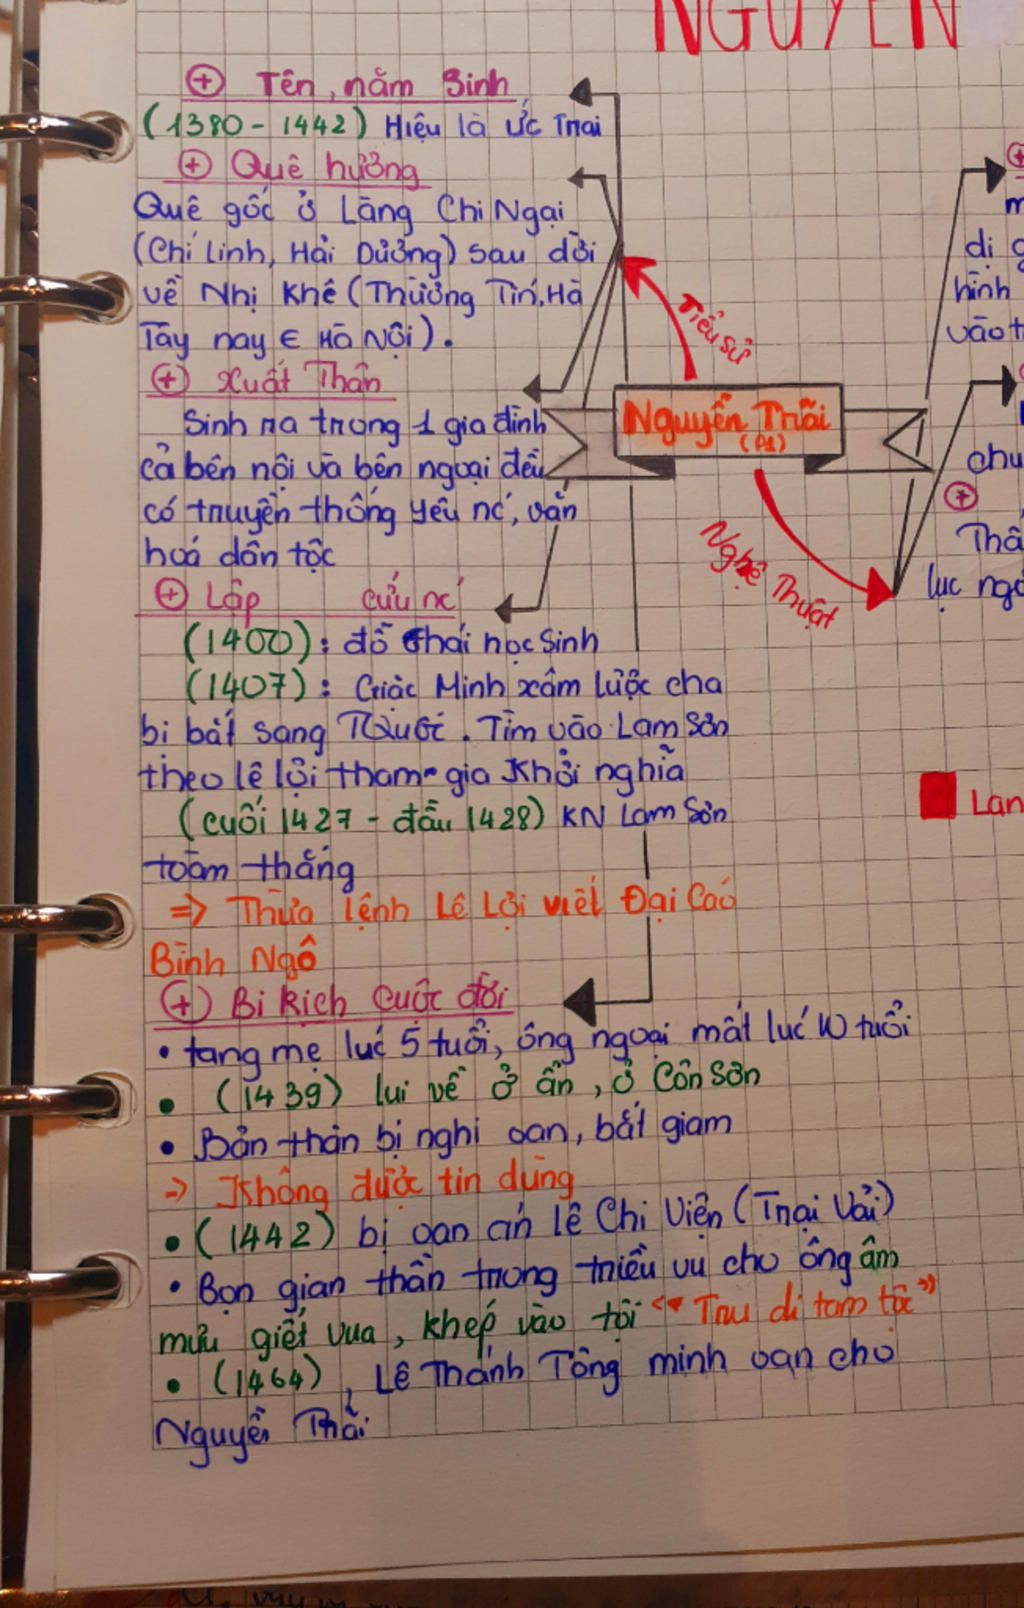 NGUYEN
⊕ Tên, năm Sinh
(1380 - 1442) Hiệu là ức Trai
⊕ Quê hương
Quê gốc ở Làng Chi Ngại
(Chí Linh, Hải Dương) sau dời
về Nhị Khê (Thường Tín, Hà
Tây nay ∈ Hà Nội).
⊕ Xuất Thân
Sinh ra trong 1 gia đình
cả bên nội và bên ngoại đều
có truyền thống yêu nć, văn
hoá dân tộc
⊕ Lập cứu nć
(1400): đỗ thái học Sinh
(1407): Giặc Minh xâm lược cha
bị bắt sang TQuốc. Tìm vào Lam Sơn
theo lê lợi tham gia Khởi nghĩa
(cuối 1427 - đầu 1428) KN Lam Sơn
toàm thắng
=> Thừa lệnh Lê Lợi viết Đại Cáo
Bình Ngô
⊕ Bi Kịch Cuộc đời
• tang mẹ lúc 5 tuổi, ông ngoại mất lúc 10 tuổi
• (1439) lui về ở ẩn, ở Côn Sơn
• Bản thân bị nghi oan, bắt giam
=> Không được tin dùng
• (1442) bị oan án lê Chi Viện (Trại Vải)
• Bọn gian thần trong triều vu cho ông âm
mưu giết vua, khép vào tội "Tru di tam tộc"
• (1464), Lê Thánh Tông minh oan cho
Nguyễn Trãi
Tiểu sử
Nguyễn Trãi
(P1)
Nghệ Thuật
⊕
m
dị g
hình
vào t
chu
⊕
Thấ
lục ngô
Lan